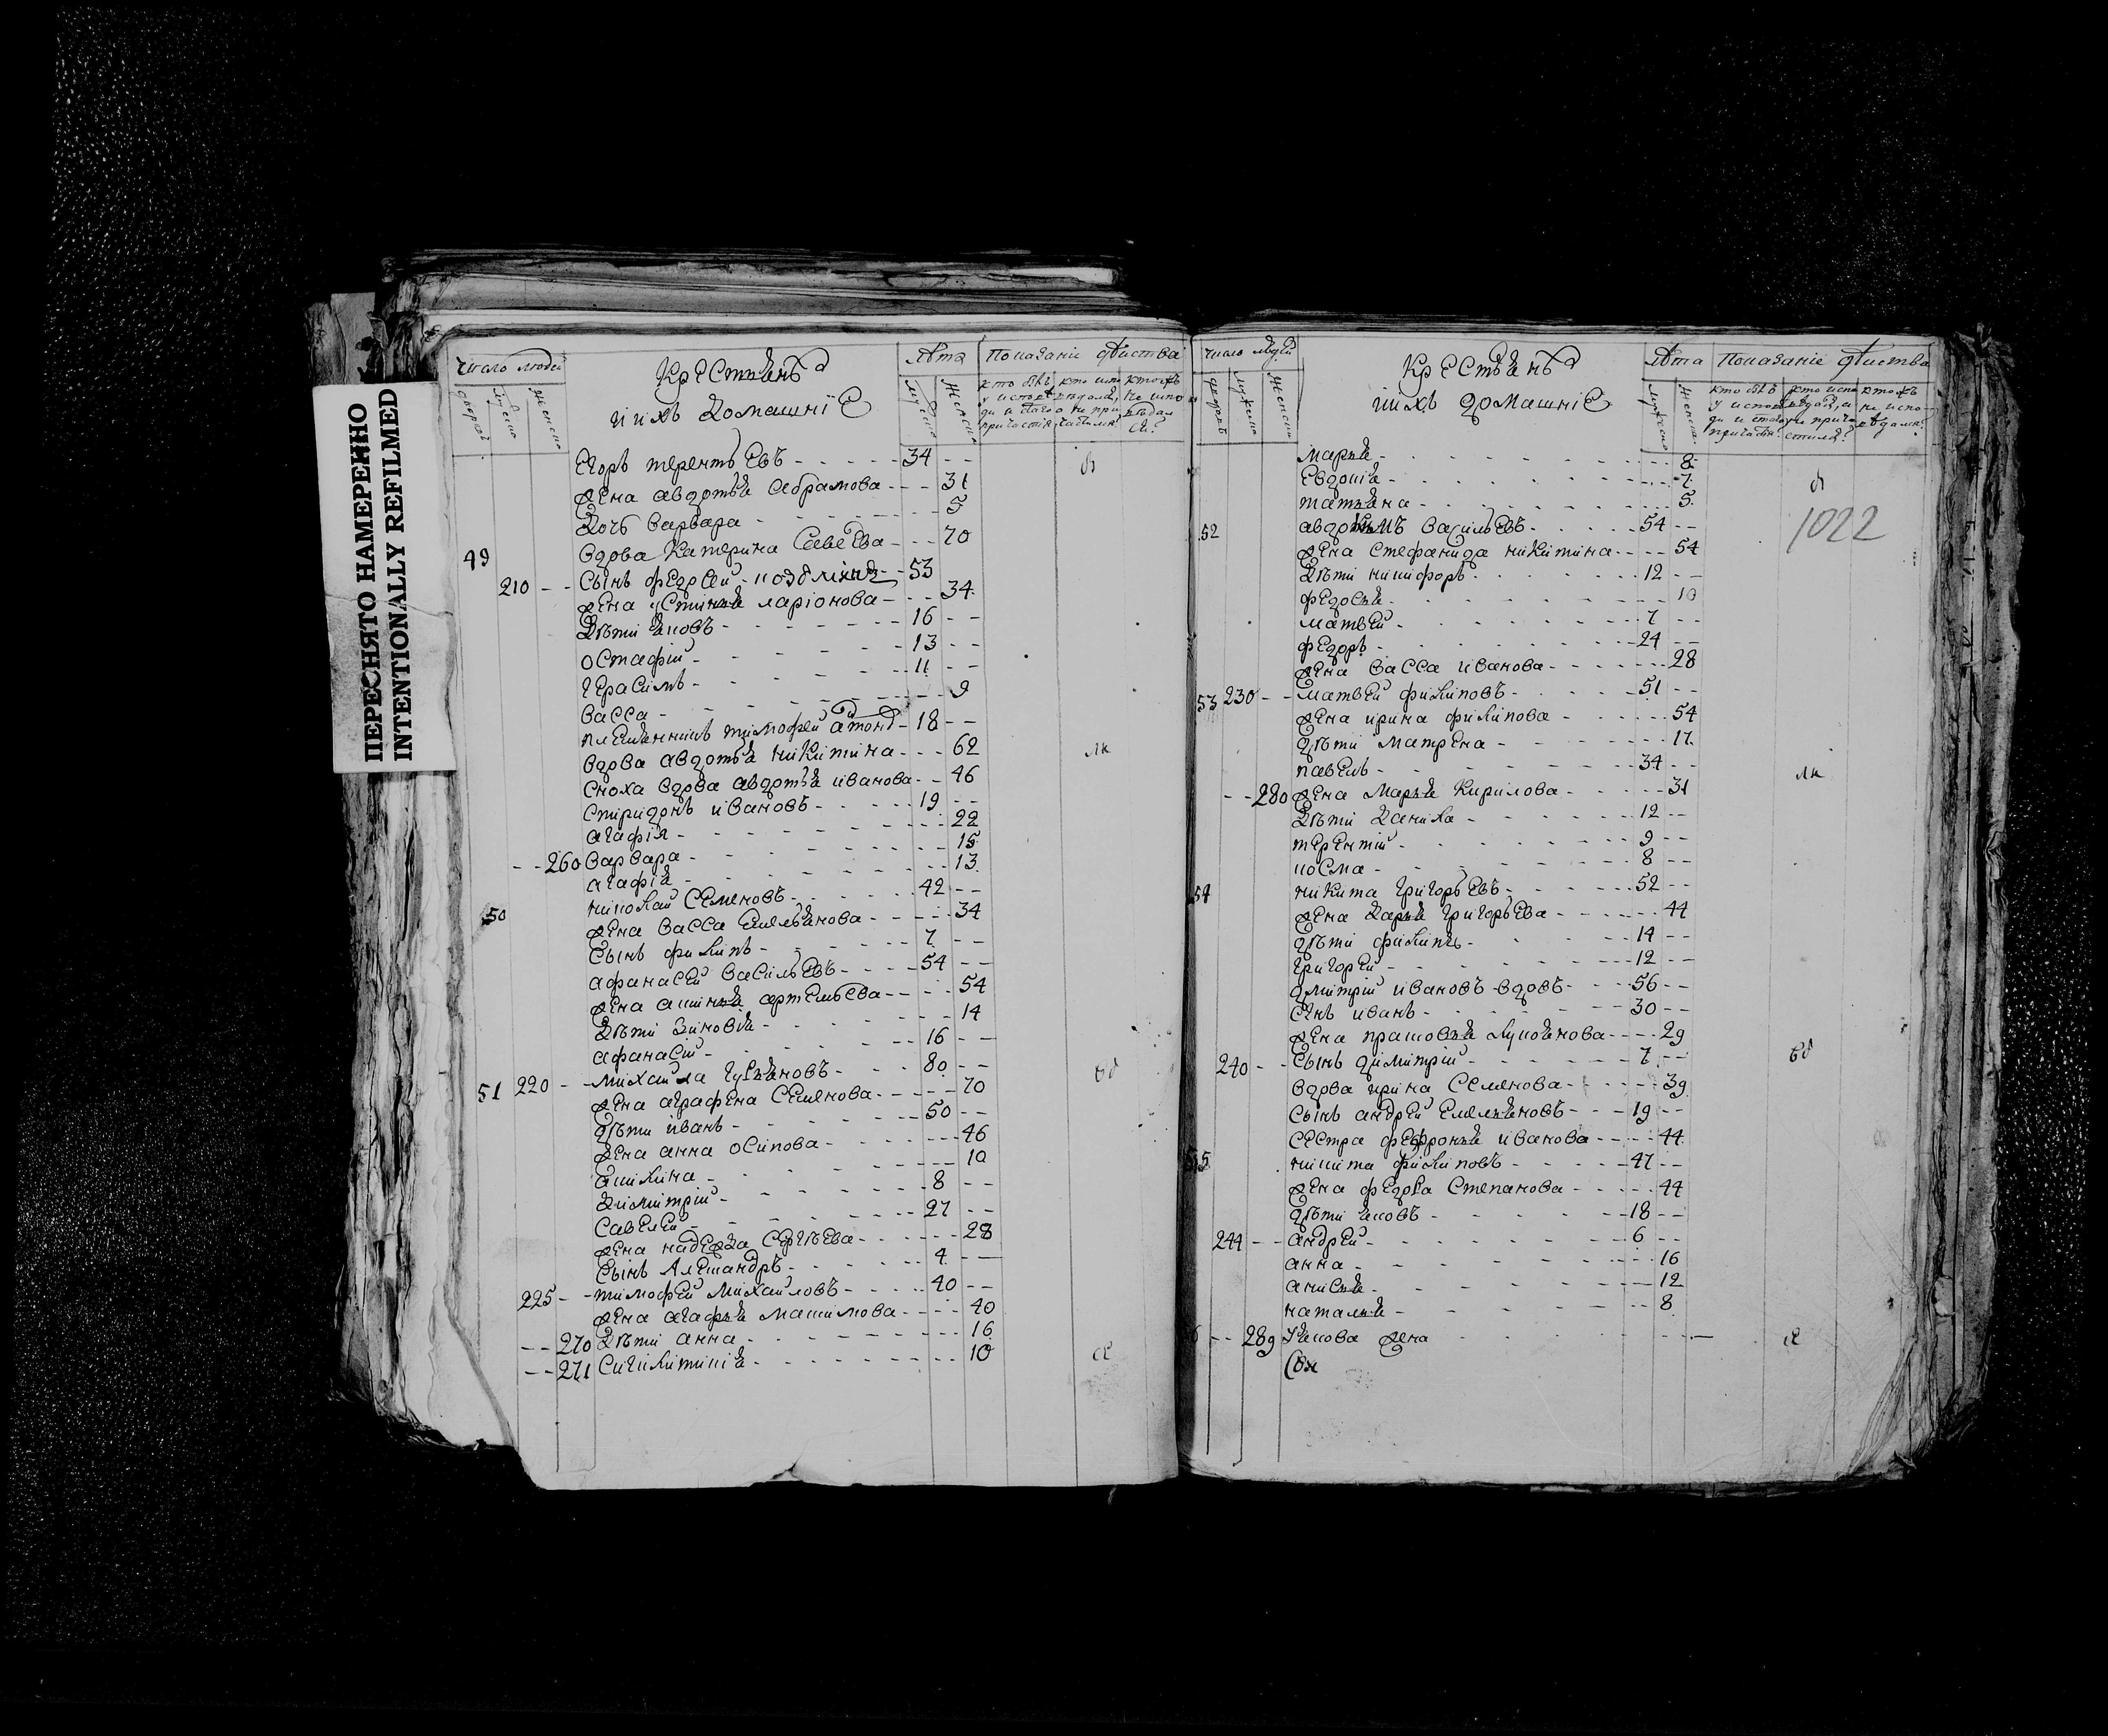 ПЕРЕСНЯТО НАМЕРЕННО
INTENTIONALLY REFILMED
число людей
Крестьянъ
и ихъ домашніе
лѣта
Показаніе дѣиства
дворовъ
мужеска
женска
мужеска
женска
Егоръ терентьевъ - 34
жена авдотья абрамова - 31
дочь варвара - 5
49 вдова катерина савеева - 70
210 сынъ федосеи - 53
жена устинья ларіонова - 34
дѣти яковъ - 16
остафіи - 13
герасимъ - 11
васса - 9
племянникъ тимофеи - 18
вдова авдотья никитина - 62
сноха вдова авдотья иванова - 46
спиридонъ ивановъ - 19
агафія - 22
260 варвара - 15
агафія - 13
50 николаи семеновъ - 42
жена васса емельянова - 34
сынъ филипъ - 7
афанасеи васильевъ - 54
жена акинья артемьева - 54
дѣти зиновья - 14
афанасіи - 16
51 220 михаила - 80
жена аграфена семенова - 70
дѣти иванъ - 50
жена анна осипова - 46
акилина - 10
димитріи - 8
савелеи - 27
жена надежда сергѣева - 28
сынъ александръ - 4
225 тимофеи михаиловъ - 40
жена агафья макимова - 40
270 дѣти анна - 16
271 сигклитикія - 10
число людей
Крестьянъ
и ихъ домашніе
лѣта
Показаніе дѣиства
дворовъ
мужеска
женска
мужеска
женска
1022
марья - 8
евдокіа - 7
татьяна - 5
52 авдокимъ васильевъ - 54
жена стефанида никитина - 54
дѣти никифоръ - 12
федосья - 10
матвеи - 7
федоръ - 24
жена васса иванова - 28
53 230 матвеи филиповъ - 51
жена ирина филипова - 54
дѣти матрена - 17
павелъ - 34
280 жена марья кирилова - 31
дѣти данила - 12
терентіи - 9
косма - 8
54 никита григорьевъ - 52
жена дарья григорьева - 44
дѣти филипъ - 14
григореи - 12
дмитріи ивановъ вдовъ - 56
сынъ иванъ - 30
жена прасковья лукоянова - 29
240 сынъ димитріи - 7
вдова ирина семенова - 39
сынъ андреи емельяновъ - 19
сестра фефронья иванова - 44
55 никита филиповъ - 47
жена федора степанова - 44
дѣти яковъ - 18
244 андреи - 6
анна - 16
анисья - 12
наталья - 8
289 жена